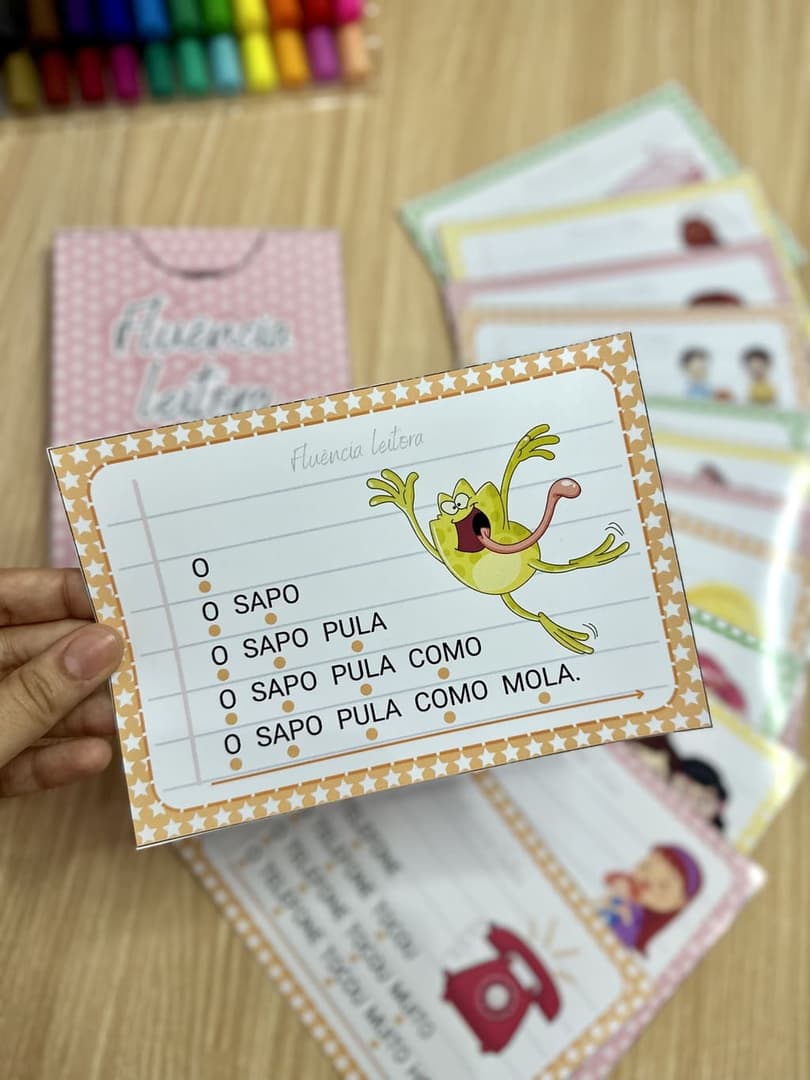 Fluência
leitora
Fluência leitora
O
O SAPO
O SAPO PULA
O SAPO PULA COMO
O SAPO PULA COMO MOLA.
TELEFONE
O TELEFONE TOCOU
O TELEFONE TOCOU MUITO